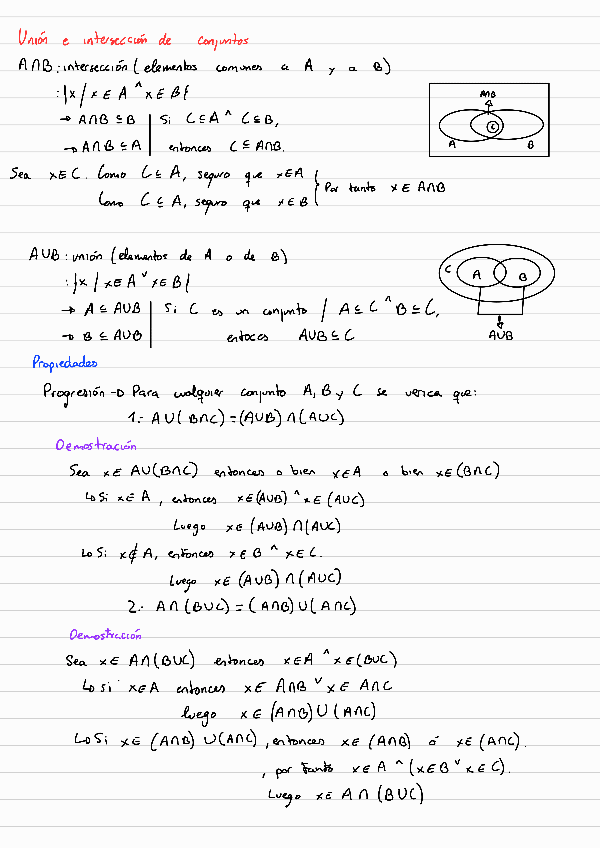 Unión e intersección de conjuntos
A∩B: intersección (elementos comunes a A y a B)
: {x / x ∈ A ^ x ∈ B}
A∩B
→ A∩B ⊆ B | Si C ⊆ A ^ C ⊆ B,
C
→ A∩B ⊆ A | entonces C ⊆ A∩B.
A B
Sea x ∈ C. Como C ⊆ A, seguro que x ∈ A
Por tanto x ∈ A∩B
Como C ⊆ A, seguro que x ∈ B
A∪B: unión (elementos de A o de B)
C A B
: {x / x ∈ A ˅ x ∈ B}
→ A ⊆ A∪B | Si C es un conjunto / A ⊆ C ^ B ⊆ C,
→ B ⊆ A∪B entoces A∪B ⊆ C
A∪B
Propiedades
Progresión → Para cualquier conjunto A, B y C se verica que:
1.- A∪(B∩C) = (A∪B)∩(A∪C)
Demostración
Sea x ∈ A∪(B∩C) entonces o bien x ∈ A o bien x ∈ (B∩C)
↳ Si x ∈ A, entonces x ∈ (A∪B) ^ x ∈ (A∪C)
Luego x ∈ (A∪B)∩(A∪C)
↳ Si x ∉ A, entonces x ∈ B ^ x ∈ C.
Luego x ∈ (A∪B)∩(A∪C)
2.- A∩(B∪C) = (A∩B)∪(A∩C)
Demostración
Sea x ∈ A∩(B∪C) entonces x ∈ A ^ x ∈ (B∪C)
↳ Si x ∈ A entonces x ∈ A∩B ˅ x ∈ A∩C
luego x ∈ (A∩B)∪(A∩C)
↳ Si x ∈ (A∩B)∪(A∩C), entonces x ∈ (A∩B) ó x ∈ (A∩C).
, por tanto x ∈ A ^ (x ∈ B ˅ x ∈ C).
Luego x ∈ A∩(B∪C)